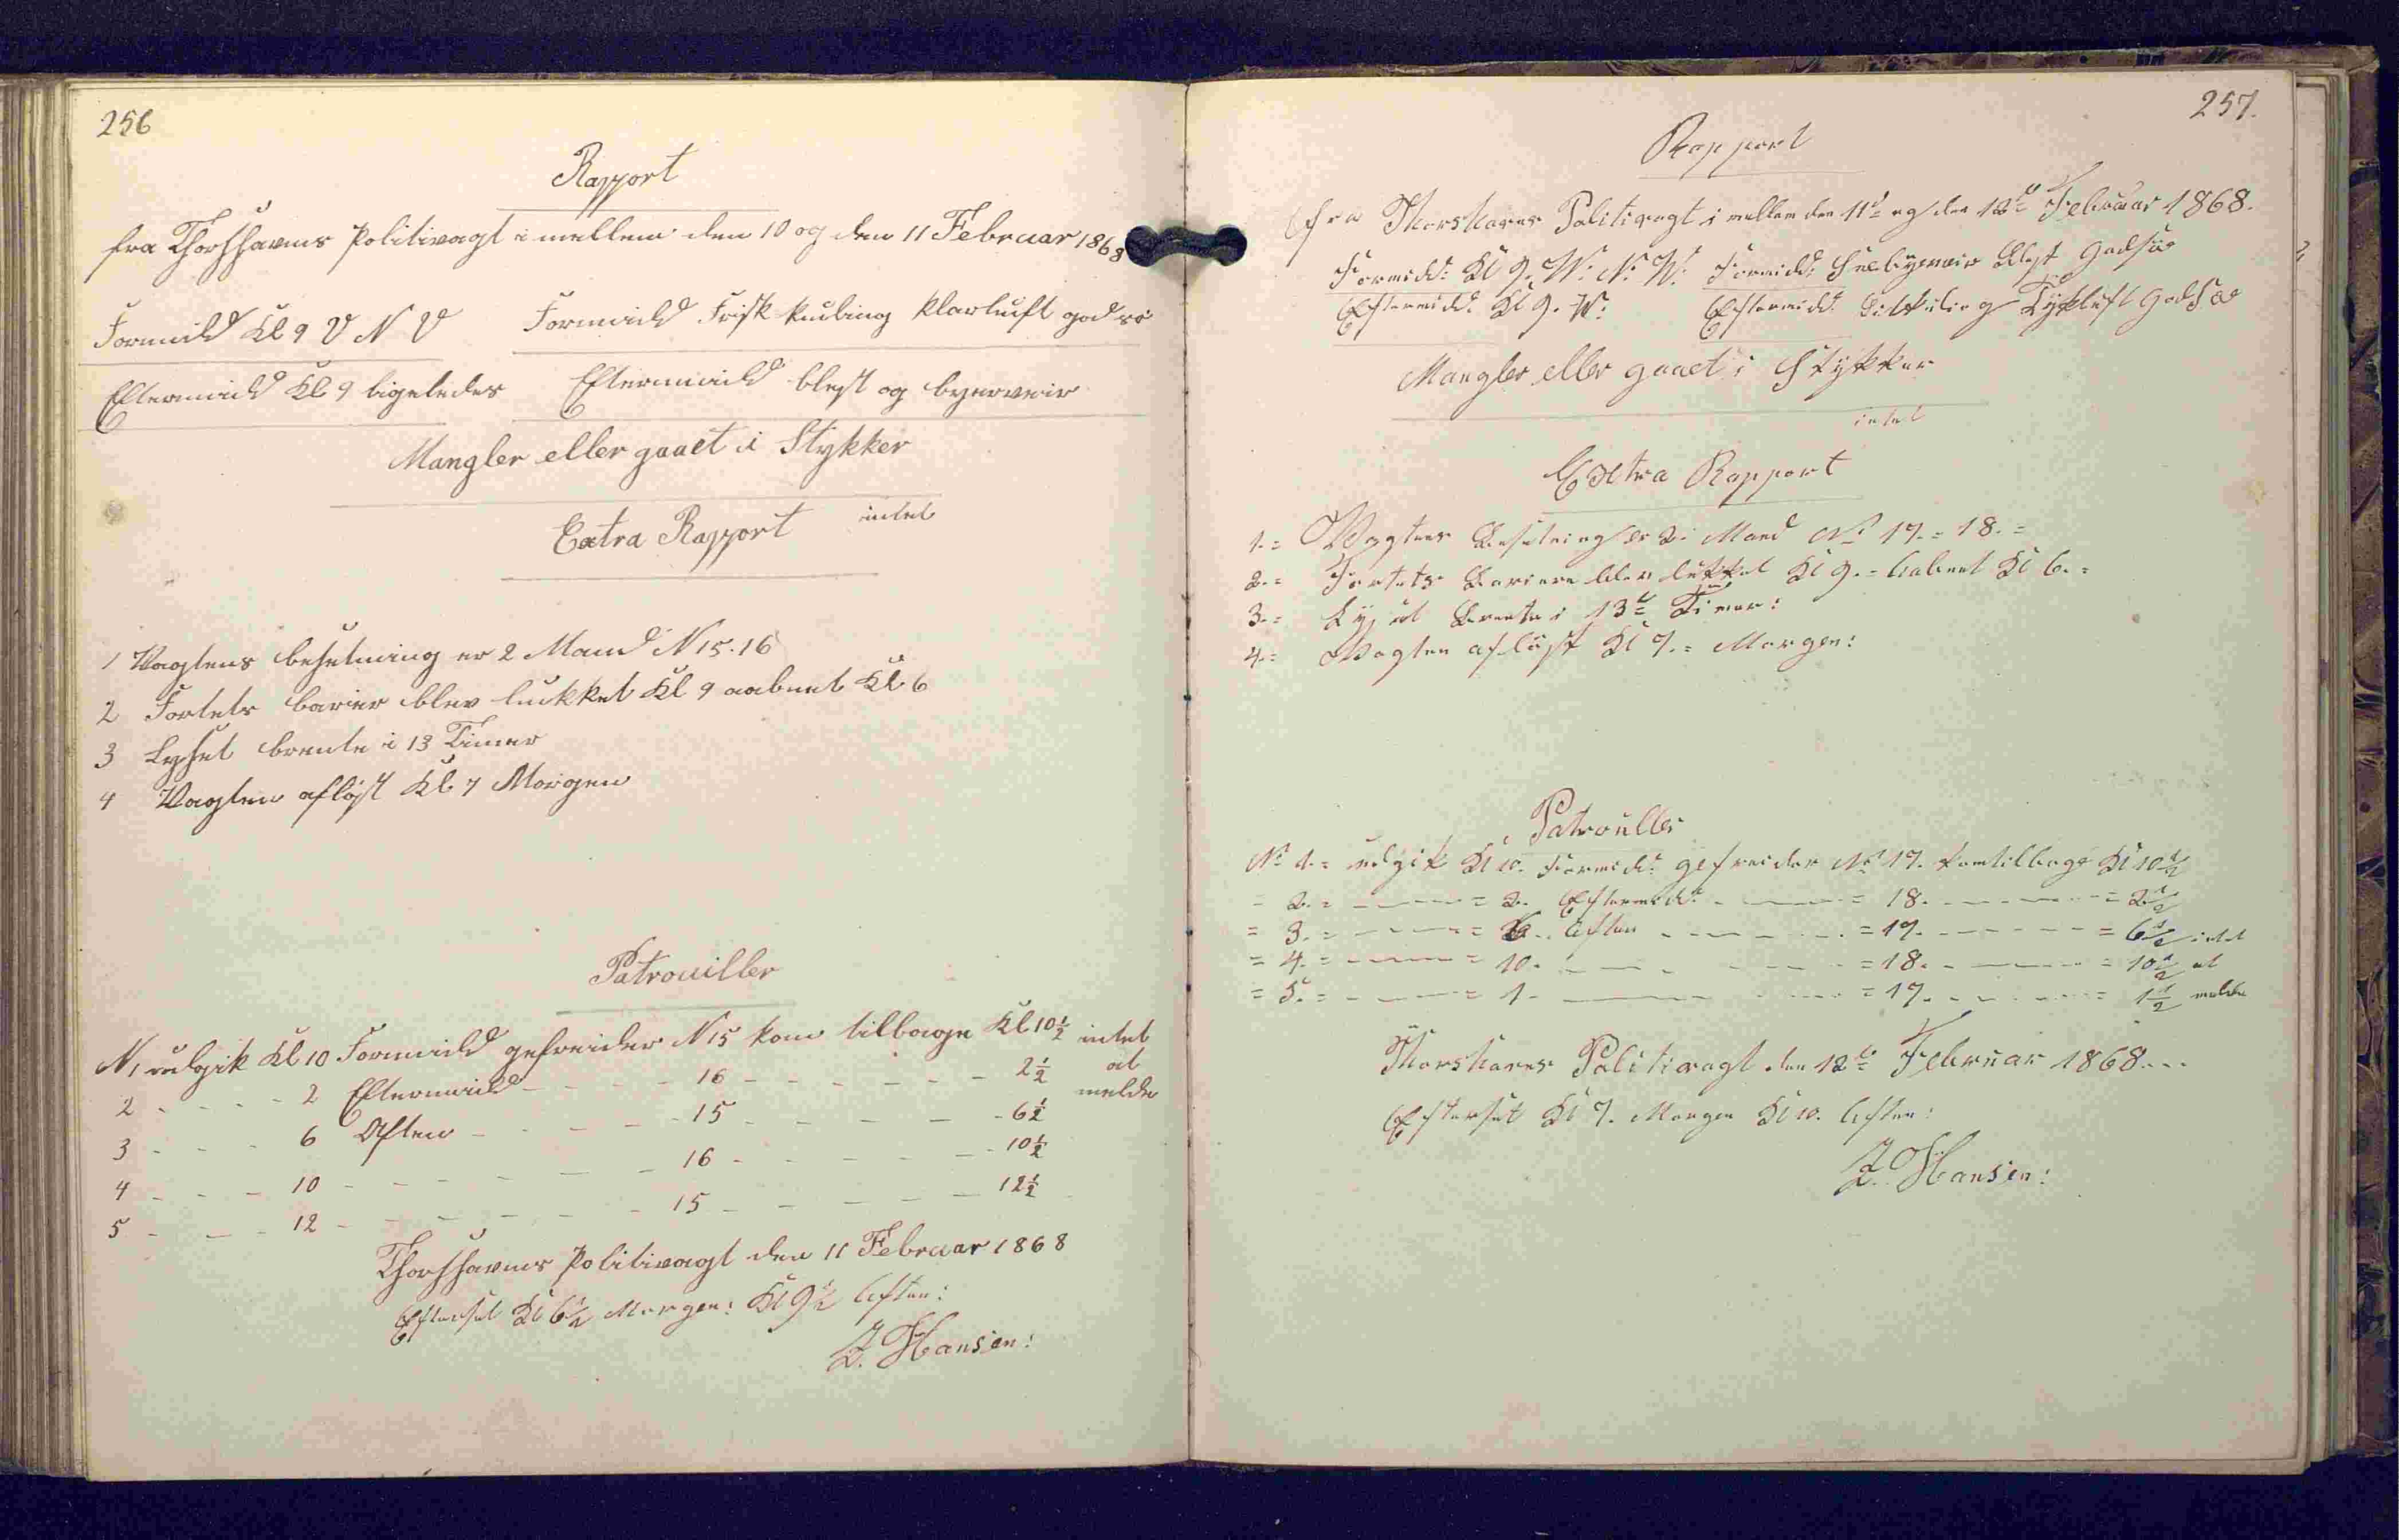 256
Rapport
fra Thorshavns Politivagt i mellem den 10 og den 11 Februar 1868
Formidd Kl 9 V N V Formidd Frisk kuling klarluft god sö
Eftermidd Kl 9 ligeledes Eftermidd blest og byerveir
Mangler eller gaaet i Stykker
intet
Extra Rapport
1 Vagtens besetning er 2 Mand N 15. 16
2 Fortets barier blev lukket Kl 9 aabnet Kl 6
3 Lyset brente i 13 Timer
4 Vagten aflöst Kl 7 Morgen
Patrouiller
N 1 udgik Kl 10 Formidd gefreider N 15 kom tilbage Kl 10½ intet
2 - - - - 2 Eftermidd - - - - 16 - - - - - - - 2½ at
3 - - - 6 Aften - - - - - 15 - - - - - - 6½ melde
4 - - - 10 - - - - - - - 16 - - - - - - 10½
5 - - - 12 - - - - - - - 15 - - - - - 12½
Thorshavns Politivagt den 11 Februar 1868
Efterset Kl 6½ Morgen: Kl 9½ Aften:
J. Hansen:
257.
Rapport
fra Thorshavns Politivagt i mellem den 11te og den 12te Februar 1868.
Formidd: Kl 9. W: N: W: Formidd: Sneebyerveir Blest God Söe
Eftermidd: Kl 9. W: Eftermidd: Kuling Tÿkluft God Söe
Mangler eller gaaet i Stÿkker
intet
Extra Rapport
1. = Vagtens Besetning er 2. Mand No 17. = 18. =
2. = Fortets Bariere blev lukket Kl 9. = Aabnet Kl 6. =
3. = Lyset Brente i 13te Timer:
4. = Vagten aflöst Kl 7. = Morgen:
Patroulle:
No 1. = udgik Kl 10. Formidd: gefreider No 17. kom tilbage Kl 10½
= 2. = - - - = 2. Eftermidd: - - - = 18. - - - - = 2½
= 3. = - - - = 6. Aften - - - - = 17. - - - - = 6½ intet
= 4. = - - - = 10. - - - - = 18. - - - = 10½ at
= 5. = - - - = 1. - - - - = 17. - - - - = 1½ melde
Thorshavns Politivagt den 12te Februar 1868...
Efterset Kl 7. Morgen Kl 10. Aften:
J. Hansen: